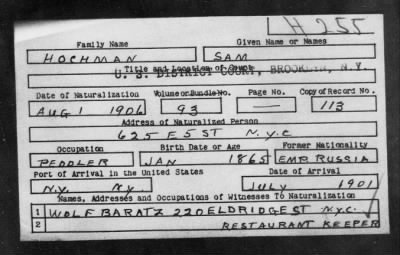 H 255
Family Name Given Name or Names
HOCHMAN SAM
Title and Location of Court
U. S. DISTRICT COURT, BROOKLYN, N.Y.
Date of Naturalization Volume or Bundle No. Page No. Copy of Record No.
AUG 1 1906 93 — 113
Address of Naturalized Person
625 E 5 ST N.Y.C
Occupation Birth Date or Age Former Nationality
PEDDLER JAN 1865 EMP RUSSIA
Port of Arrival in the United States Date of Arrival
N.Y. N.Y. JULY 1901
Names, Addresses and Occupations of Witnesses To Naturalization
1 WOLF BARATZ 220 ELDRIDGE ST N.Y.C.
2 RESTAURANT KEEPER